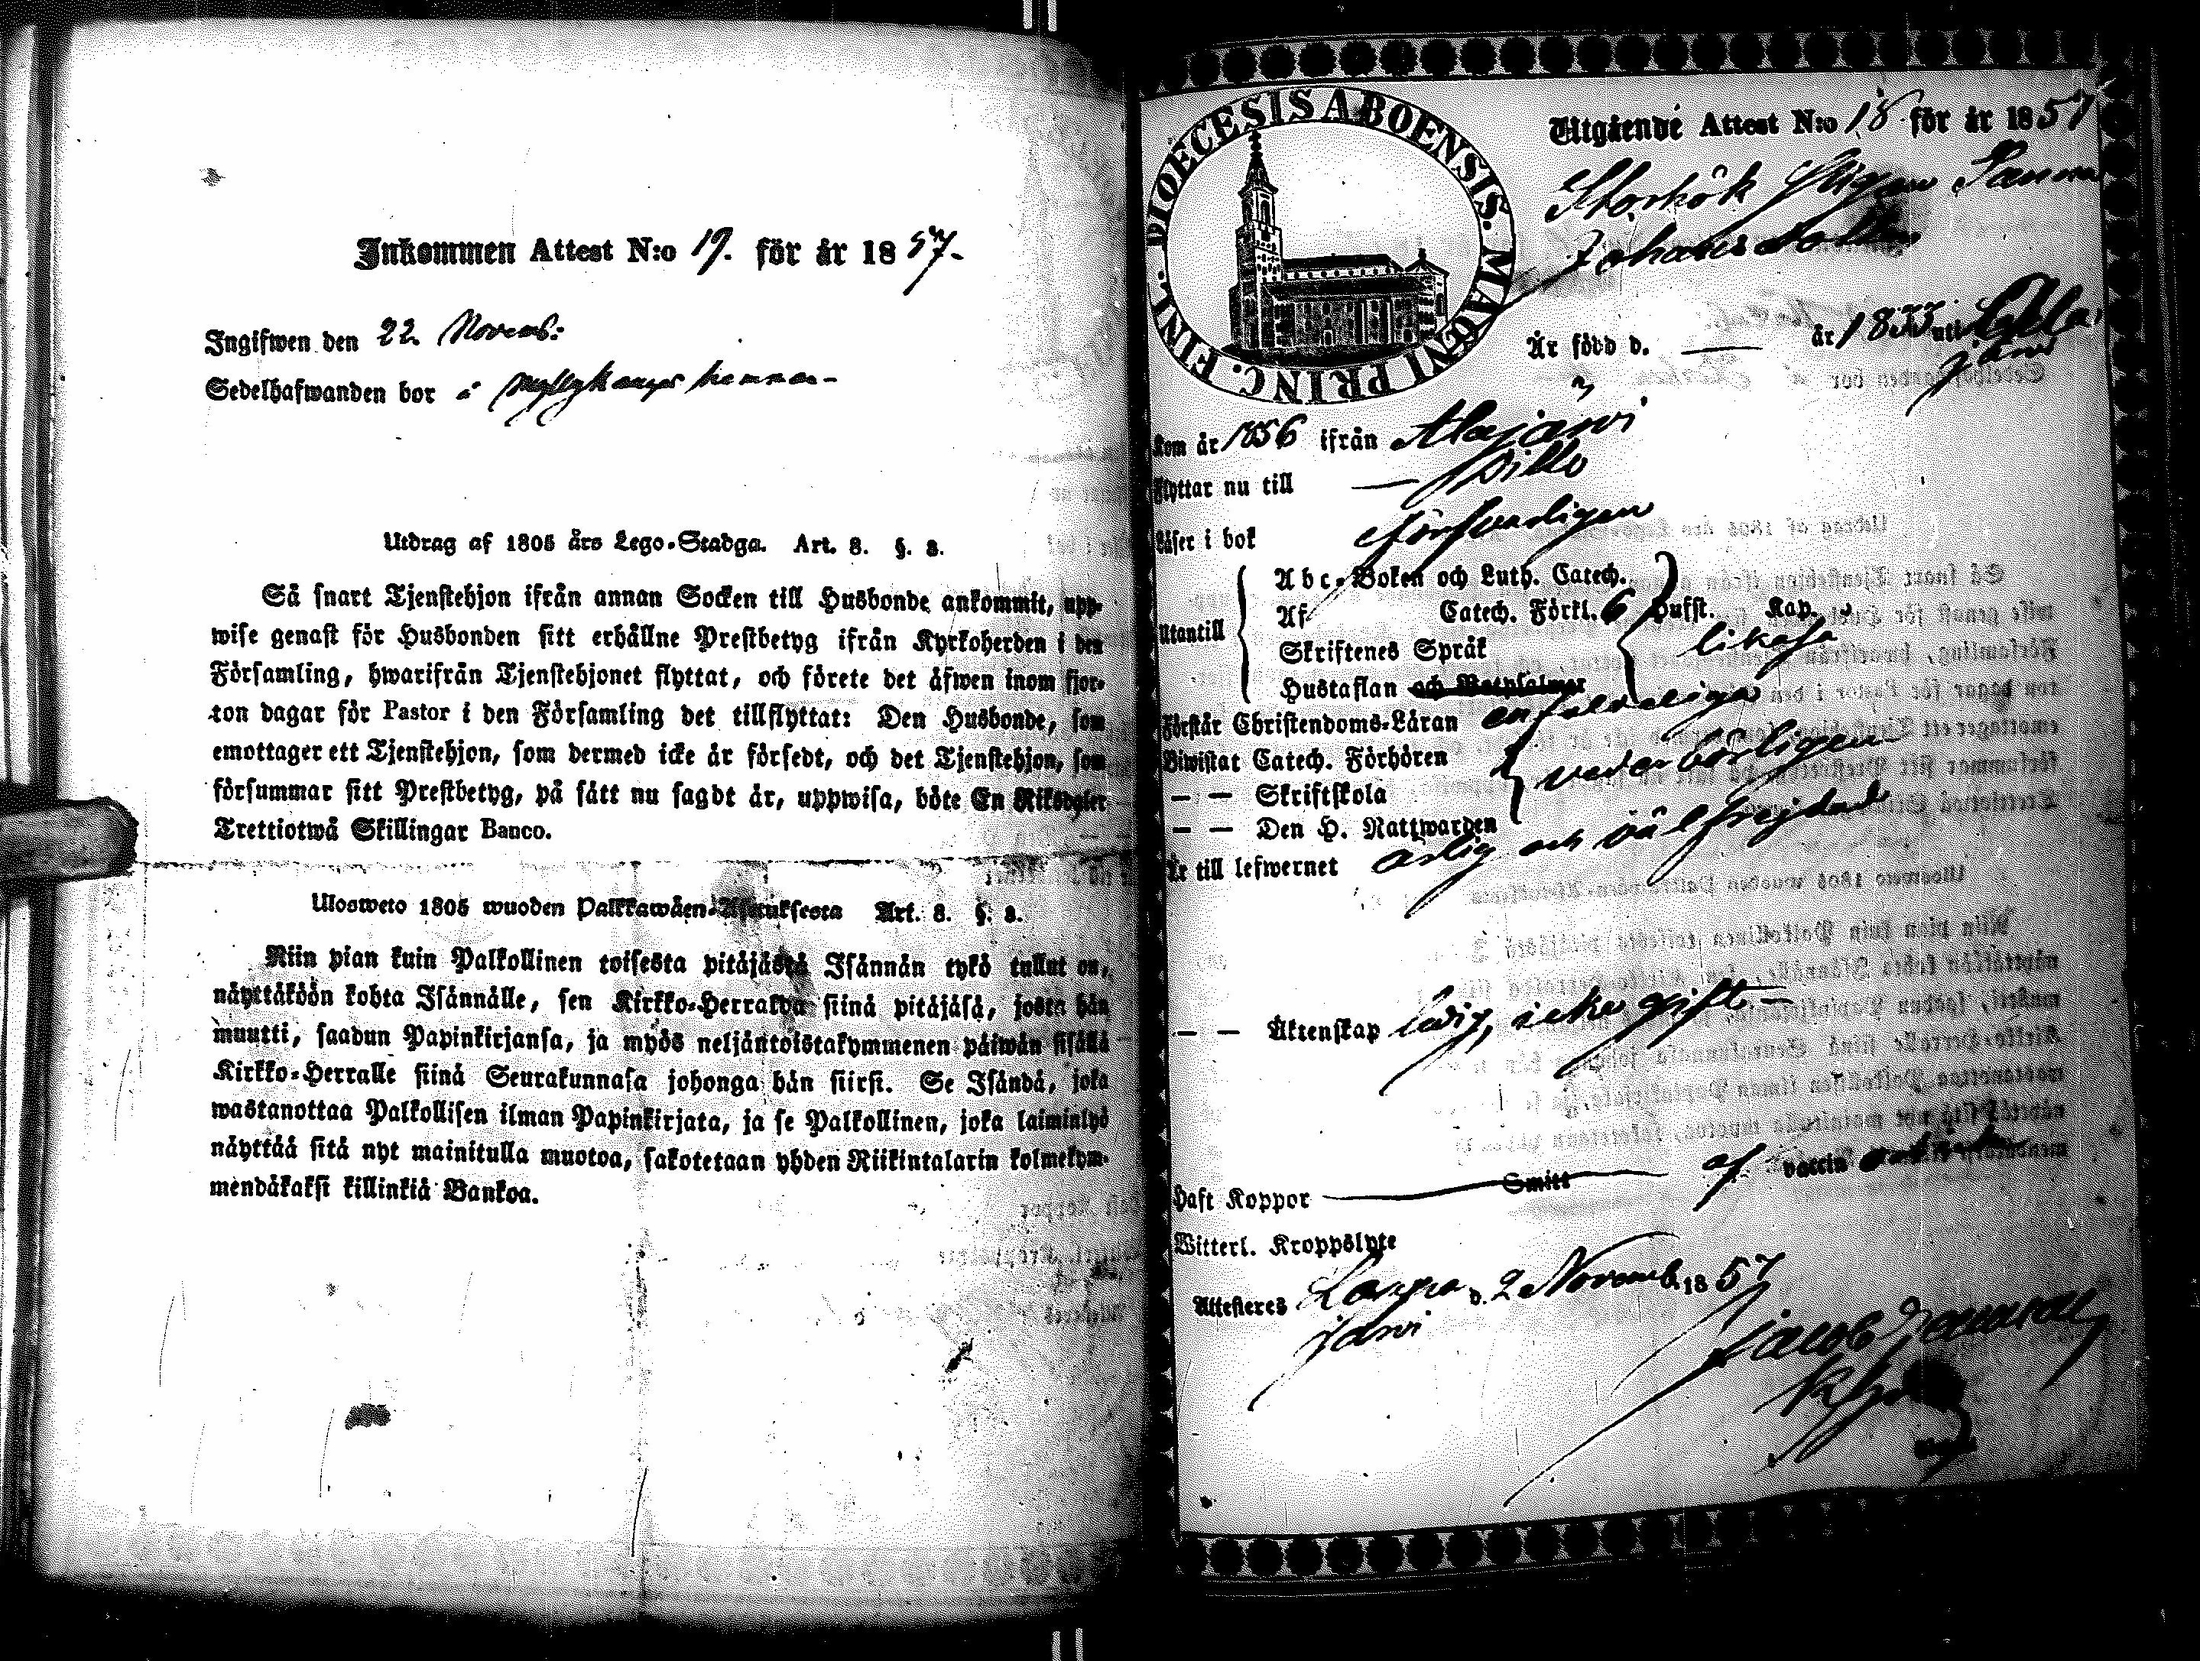 Inkommen Attest N:o 19. för år 1857.
Ingifwen den 22 Novemb:
Sedelhafwanden bor i
Utdrag af 1805 års Lego-Stadga. Art. 8. §. 2.
Så snart Tjenstehjon ifrån annan Socken till Husbonde ankommit, upp-
wise genast för Husbonden sitt erhållne Prestbetyg ifrån Kyrkoherden i den
Församling, hwarifrån Tjenstehjonet flyttat, och förete det äfwen inom fjor-
ton dagar för Pastor i den Församling det tillflyttat: Den Husbonde, som
emottager ett Tjenstehjon, som dermed icke är försedt, och det Tjenstehjon, som
försummar sitt Prestbetyg, på sätt nu sagdt är, uppwisa, böte En Riksdaler
Trettiotwå Skillingar Banco.
Ulosweto 1805 wuoden Palkkawäen-Asetuksesta Art. 8. §. 2.
Niin pian kuin Palkollinen toisesta pitäjästä Isännän tykö tullut on,
näyttäköön kohta Isännälle, sen Kirkko-Herralda siinä pitäjäsä, josta hän
muutti, saadun Papinkirjansa, ja myös neljäntoistakymmenen päiwän sisällä
Kirkko-Herralle siinä Seurakunnasa johonga hän siirsi. Se Isändä, joka
wastanottaa Palkollisen ilman Papinkirjata, ja se Palkollinen, joka laiminlyö
näyttää sitä nyt mainitulla muotoa, sakotetaan yhden Riikintalarin kolmekym-
mendäkaksi killinkiä Bankoa.
DIOECESIS ABOENSIS. MAGNI PRINC. FINL.
Utgående Attest N:o 18 för år 1857
Storhök Pigan Sanna
Johansdotter
Är född d. — år 1833 uti Lappa
järvi
Kom år 1856 ifrån Alajärvi
Flyttar nu till — Ditto
Läser i bok försvarligen
Utantill
Abc-Boken och Luth. Catech.
Af Catech. Förkl. 6 Hufst. Kap.
Skriftenes Språk likaså
Hustaflan och Botpsalmer
Förstår Christendoms-Läran enfaldeligen
Biwistat Catech. Förhören
— — Skriftskola vederbörligen
— — Den H. Nattwarden
Är till lefwernet ärlig och välfrejdad
— — Äktenskap ledig, icke gift —
Haft Koppor Smitt af vaccin
Witterl. Kroppslyte
Attesteres Lappo d. 2 Novemb. 1857
järvi
Jacob